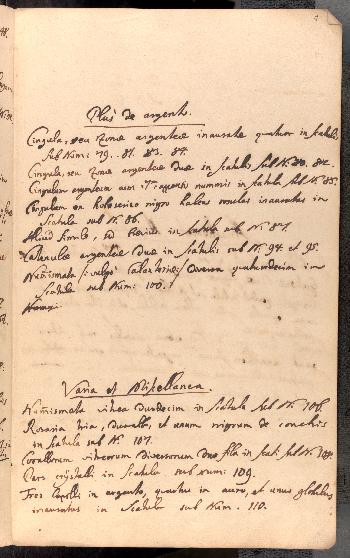 Plus de argento.
Cingula, seu Zonae argenteae inauratae quatuor in scatulis
sub Num: 79. 81. 83. 84.
Cingula, seu Zonae argenteae duae in scatulis sub N. 80. 82.
Cingulum argenteum cum argenteis nummis in scatula sub N. 85.
Cingulum ex holoserico nigro habens inauratas in
scatula sub N. 86.
Aliud simile, sed in scatula sub N. 87.
Catenulae argenteae duae in scatulis sub N. 94. et 95.
Numismata vulgo diversa quatuordecim in
scatula sub Num: 100.
Varia et Miscellanea.
Numismata duodecim in scatula sub N. 106.
Rosaria tria, duo alba, et unum nigrum de conchis
in scatula sub N. 107.
Corallorum vitreorum diversorum duo fila in scat. sub N. 108.
Pars crystalli in scatula sub num: 109.
Tres lapilli in argento, quartus in auro, et unus globulus
inauratus in scatula sub Num. 110.